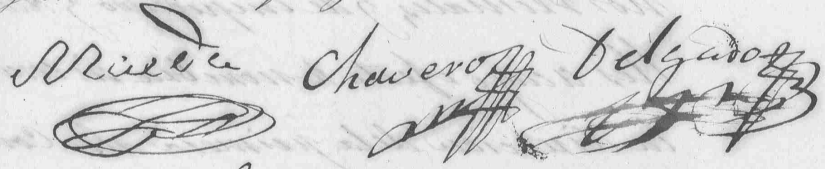 Rueda Chavero Delgado